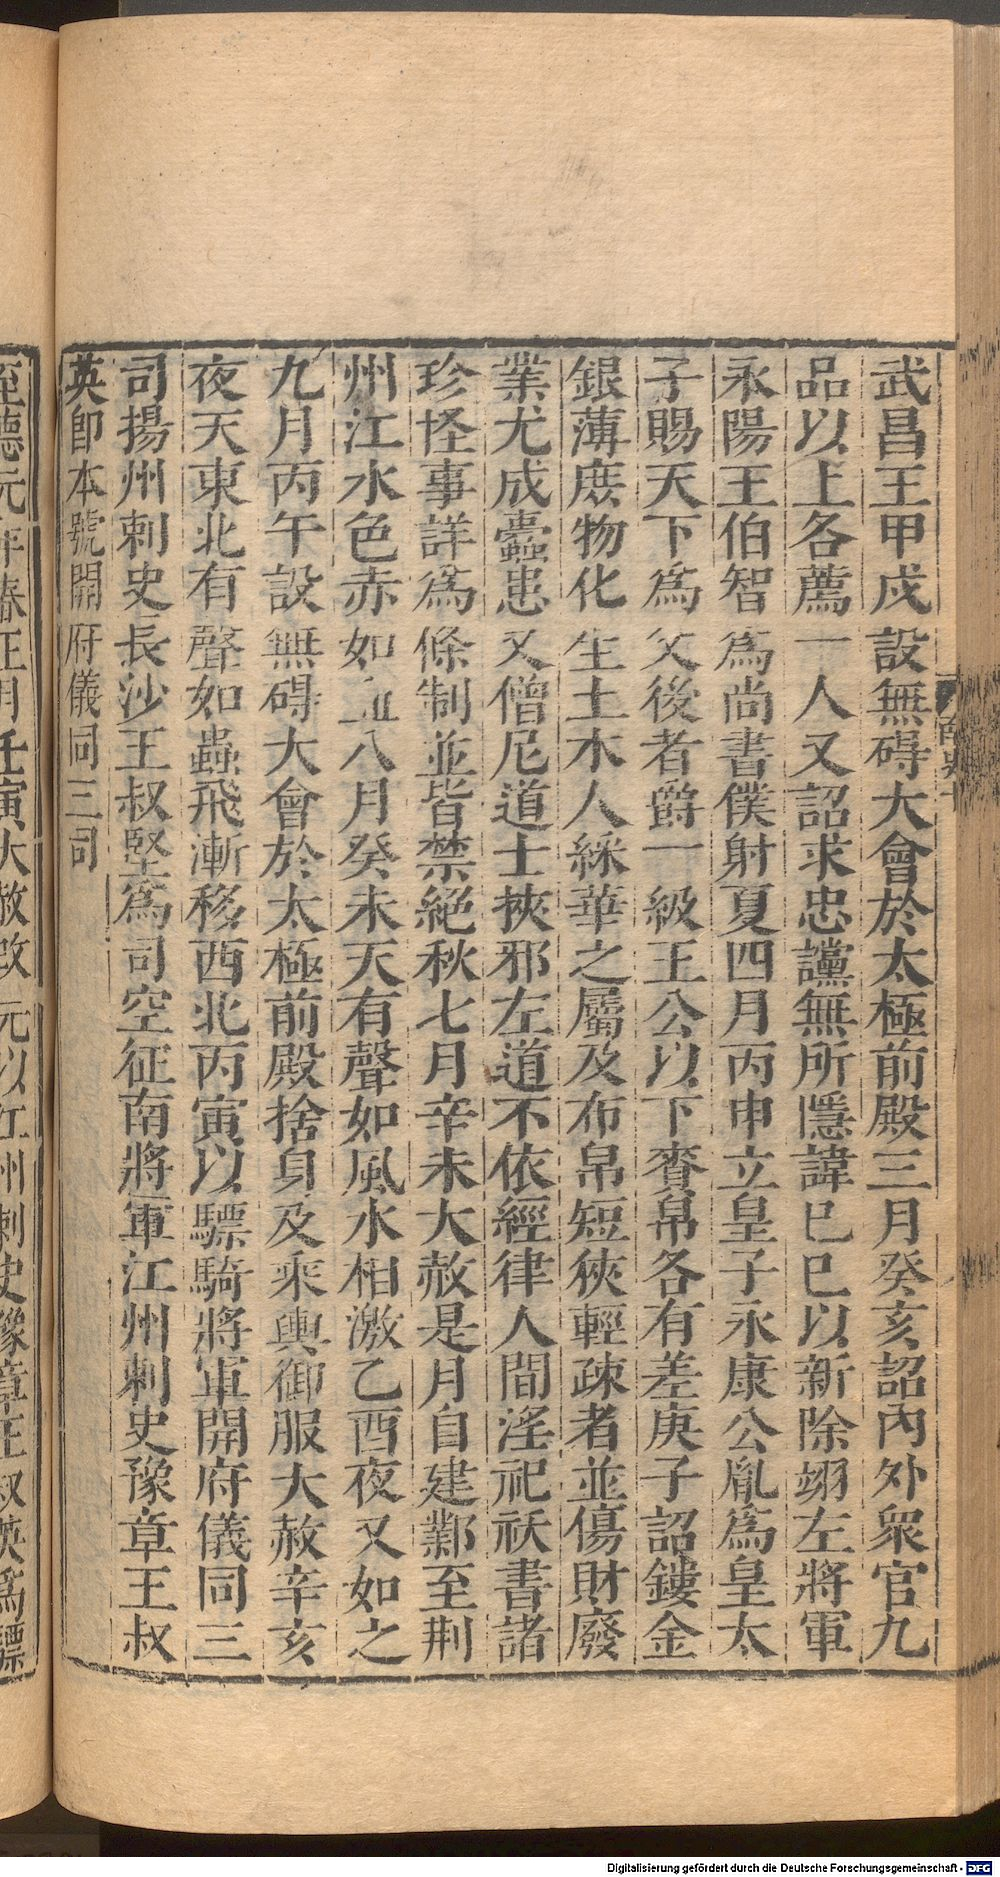 武昌王甲戍設無碍大會於太極前殿三月癸亥詔內外衆官九
品以上各薦一人又詔求忠讜無所隱諱巳巳以新除翊左將軍
永陽王伯智爲尚書僕射夏四月丙申立皇子永康公胤爲皇太
子賜天下爲父後者爵一級王公以下賚帛各有差庚子詔鏤金
銀薄庶物化生土木人綵華之屬及布帛短狹輕疎者並傷財廢
業尤成蠹患又僧尼道士挾邪左道不依經律人間淫祀祅書諸
珍怪事詳爲條制並皆禁絕秋七月辛未大赦是月自建鄴至荆
州江水色赤如血八月癸未天有聲如風水相激乙酉夜又如之
九月丙午設無碍大會於太極前殿捨身及乘輿御服大赦辛亥
夜天東北有聲如蟲飛漸移西北丙寅以驃騎將軍開府儀同三
司揚州刺史長沙王叔堅爲司空征南將軍江州刺史豫章王叔
英卽本號開府儀同三司
至德元年春正月壬寅大赦改元以江州刺史豫章王叔英爲驃
Digitalisierung gefördert durch die Deutsche Forschungsgemeinschaft - DFG